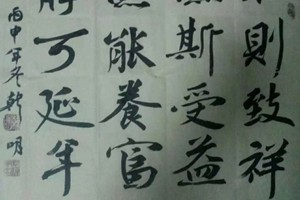 則致祥
斯受益
能養富
可延年
丙申年冬乾明